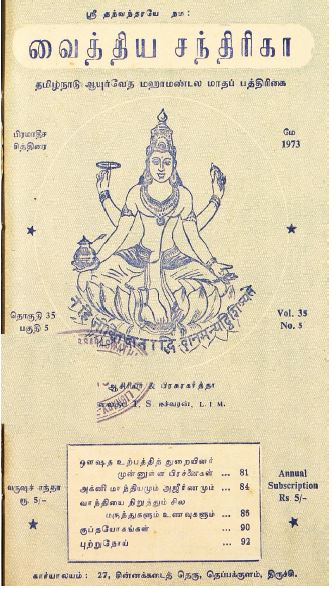 ஸ்ரீ தந்வந்தரயே நம:
வைத்திய சந்திரிகா
தமிழ்நாடு ஆயுர்வேத மஹாமண்டல மாதப் பத்திரிகை
பிரமாதீச
சித்திரை
மே
1973
தொகுதி 35
பகுதி 5
Vol. 35
No. 5
ஆசிரியர் & பிரசுரகர்த்தா
T. S. ஈச்வரன், L. I. M.
ஔஷத உற்பத்தித் துறையினர்
முன்னுள்ள பிரச்னைகள் ... 81
அக்னி மாந்தியமும் அஜீர்ணமும் ... 84
வாந்தியை நிறுத்தும் சில
மருந்துகளும் உணவுகளும் ... 85
குப்தயோகங்கள் ... 90
புற்றுநோய் ... 92
வருஷ சந்தா
ரூ. 5/-
Annual
Subscription
Rs 5/-
காரியாலயம் : 27, சின்னக்கடைத் தெரு, தெப்பக்குளம், திருச்சி.